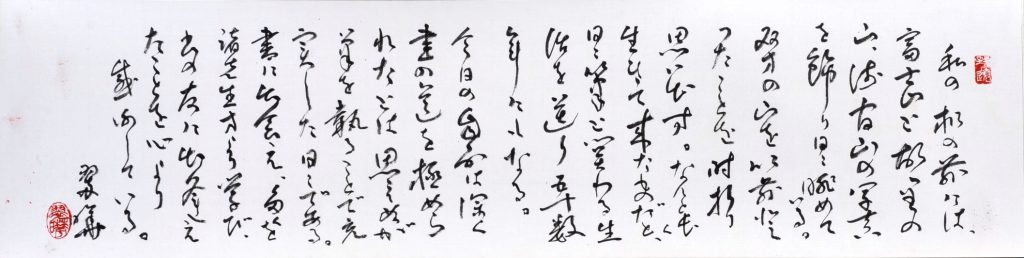 私の机の前には、
富士と故里の
山、山の写真
を飾り日々眺めて
いる。
双方の山を以前登
ったことを時折り
思い出す。
生きて来た
日々筆と関わる生
活を送り五十数
年にもなる。
今日の自分は深く
書の道を極めら
れたとは思えぬが
筆を執ることで充
実した日々である。
書に出会え、
諸先生方より学び、
書の友に出逢え
たことを心より
感謝している。